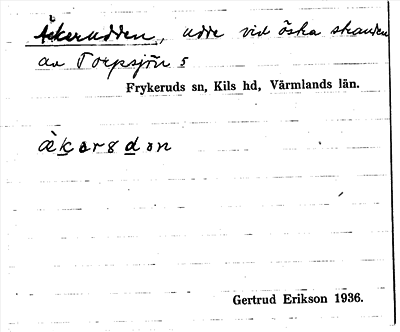 Åkerudden, udde vid östra stranden
av Torpsjön s
Frykeruds sn, Kils hd, Värmlands län.
Gertrud Erikson 1936.